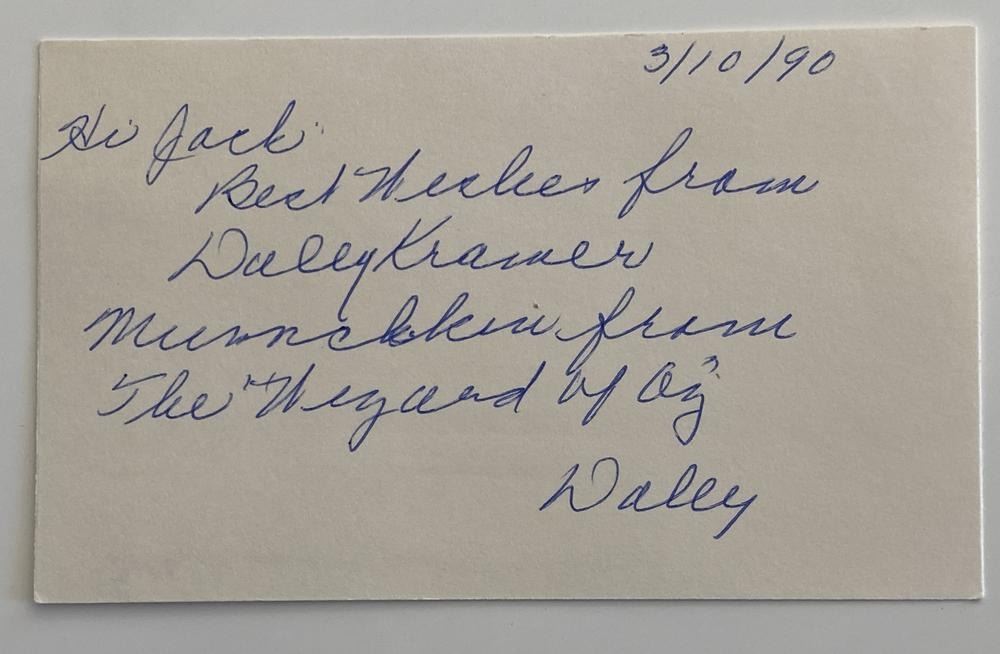 3/10/90
Hi Jack
Best Wishes from
Dolly Kramer
Munnchkin from
The "Wizard of Oz"
Dolly